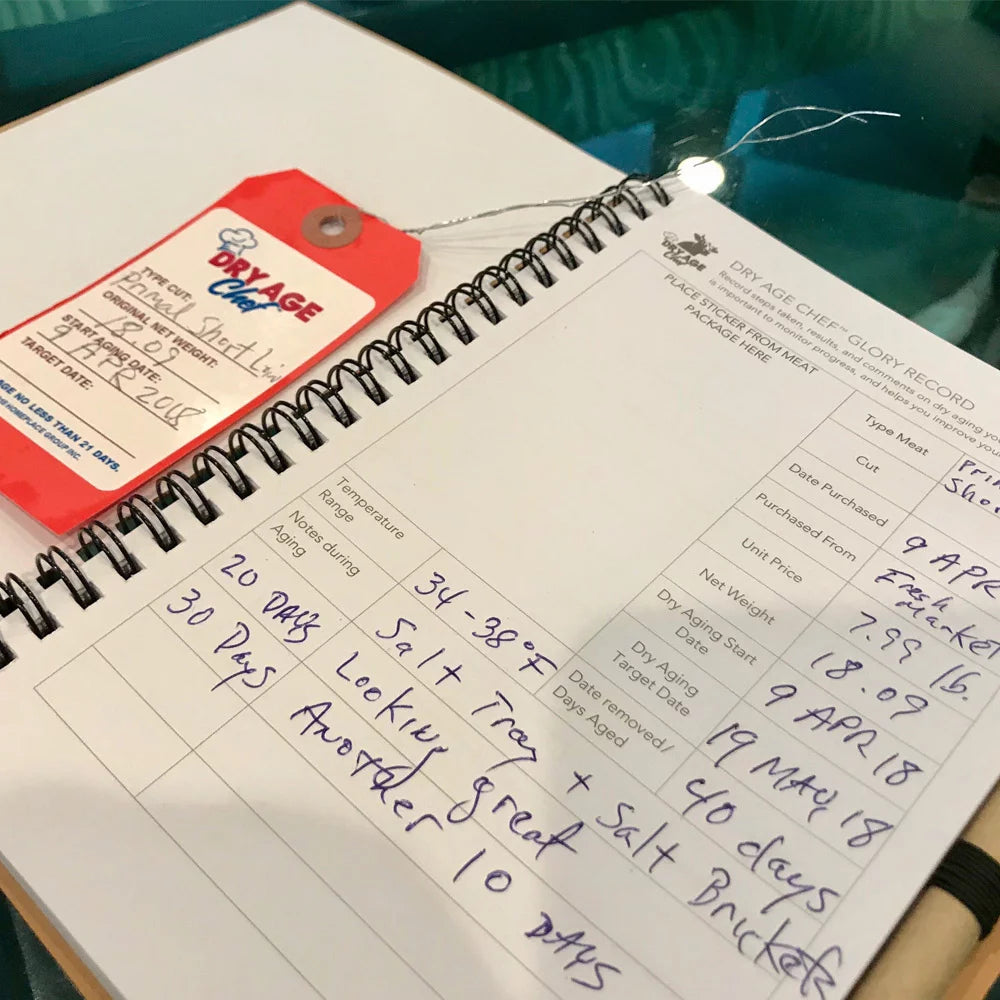 DRY AGE
Chef
TYPE CUT:
Primal Short Loin
ORIGINAL NET WEIGHT:
18.09
START AGING DATE:
9 APR 2018
TARGET DATE:
AGE NO LESS THAN 21 DAYS.
HOMEPLACE GROUP INC.
DRY AGE
Chef
DRY AGE CHEF™ GLORY RECORD
Record steps taken, results, and comments on dry aging
is important to monitor progress, and helps you improve
PLACE STICKER FROM MEAT
PACKAGE HERE
Type Meat
Cut
Date Purchased 9 APR
Purchased From Fresh Market
Unit Price 7.99 lb.
Net Weight 18.09
Dry Aging Start
Date 9 APR 18
Dry Aging
Target Date 19 MAY 18
Date removed/
Days Aged 40 days
Temperature
Range 34-38°F
Notes during
Aging Salt Tray + Salt Brickets
20 DAYS Looking great
30 Days Another 10 DAYS